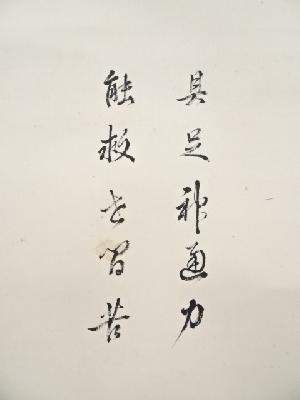 具足神通力
能救世間苦